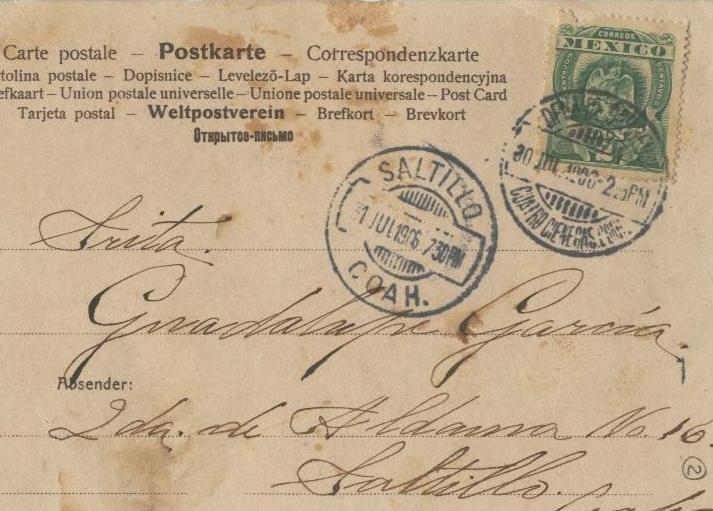 Carte postale – Postkarte – Correspondenzkarte
tolina postale – Dopisnice – Levelezö-Lap – Karta korespondencyjna
efkaart – Union postale universelle – Unione postale universale – Post Card
Tarjeta postal – Weltpostverein – Brefkort – Brevkort
Открытое-письмо
CORREOS
MEXICO
30 JUL 1906 - 2 PM
CUATRO CIENEGAS
SALTILLO
31 JUL 1906 730PM
COAH.
Srita.
Guadalupe García.
Absender:
2da. de Aldama No. 16.
Saltillo.
2